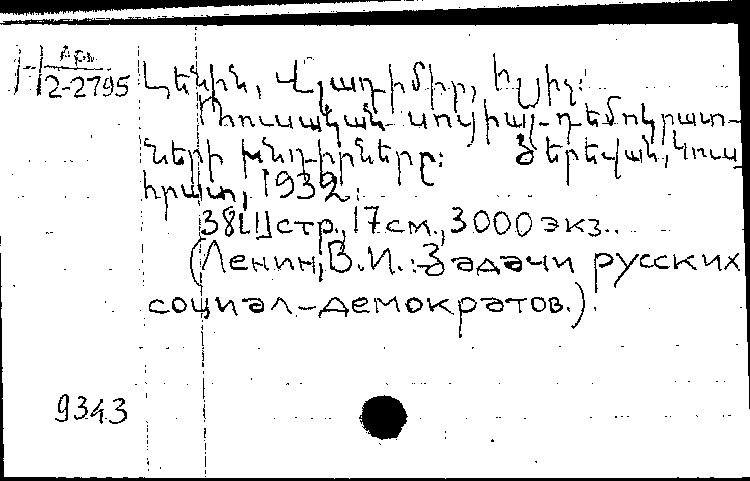 Н Арм.
2-2795
Լենին, Վլադիմիր, Իլյիչ:
Ռուսական սոցիալ-դեմոկրատ-
ների խնդիրները: Յերեվան, Կուս
հրատ, 1932.
38[1] стр., 17 см., 3000 экз..
(Ленин, В.И.: Задачи русских
социал-демократов.).
9343